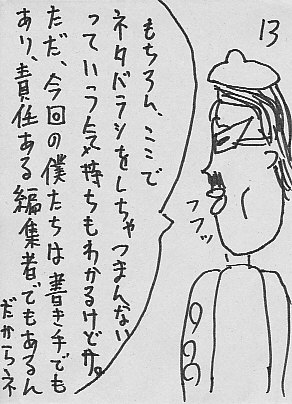 13
もちろん、ここで
ネタバラシをしちゃつまんない
っていう気持ちもわかるけどサ。
ただ、今回の僕たちは書き手でも
あり、責任ある編集者でもあるん
だからネ
フフッ